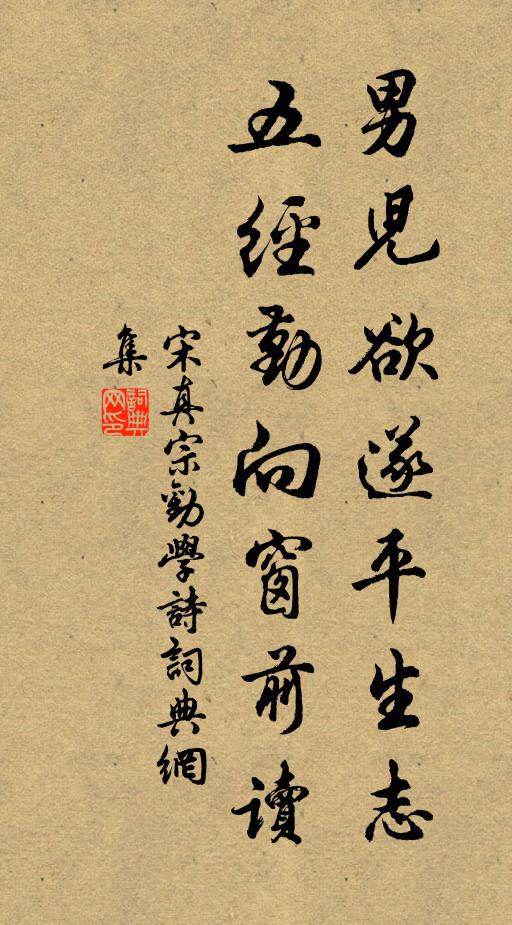 男兒欲遂平生志
五經勤向窗前讀
宋真宗勸學詩詞典網
集
詞典網印